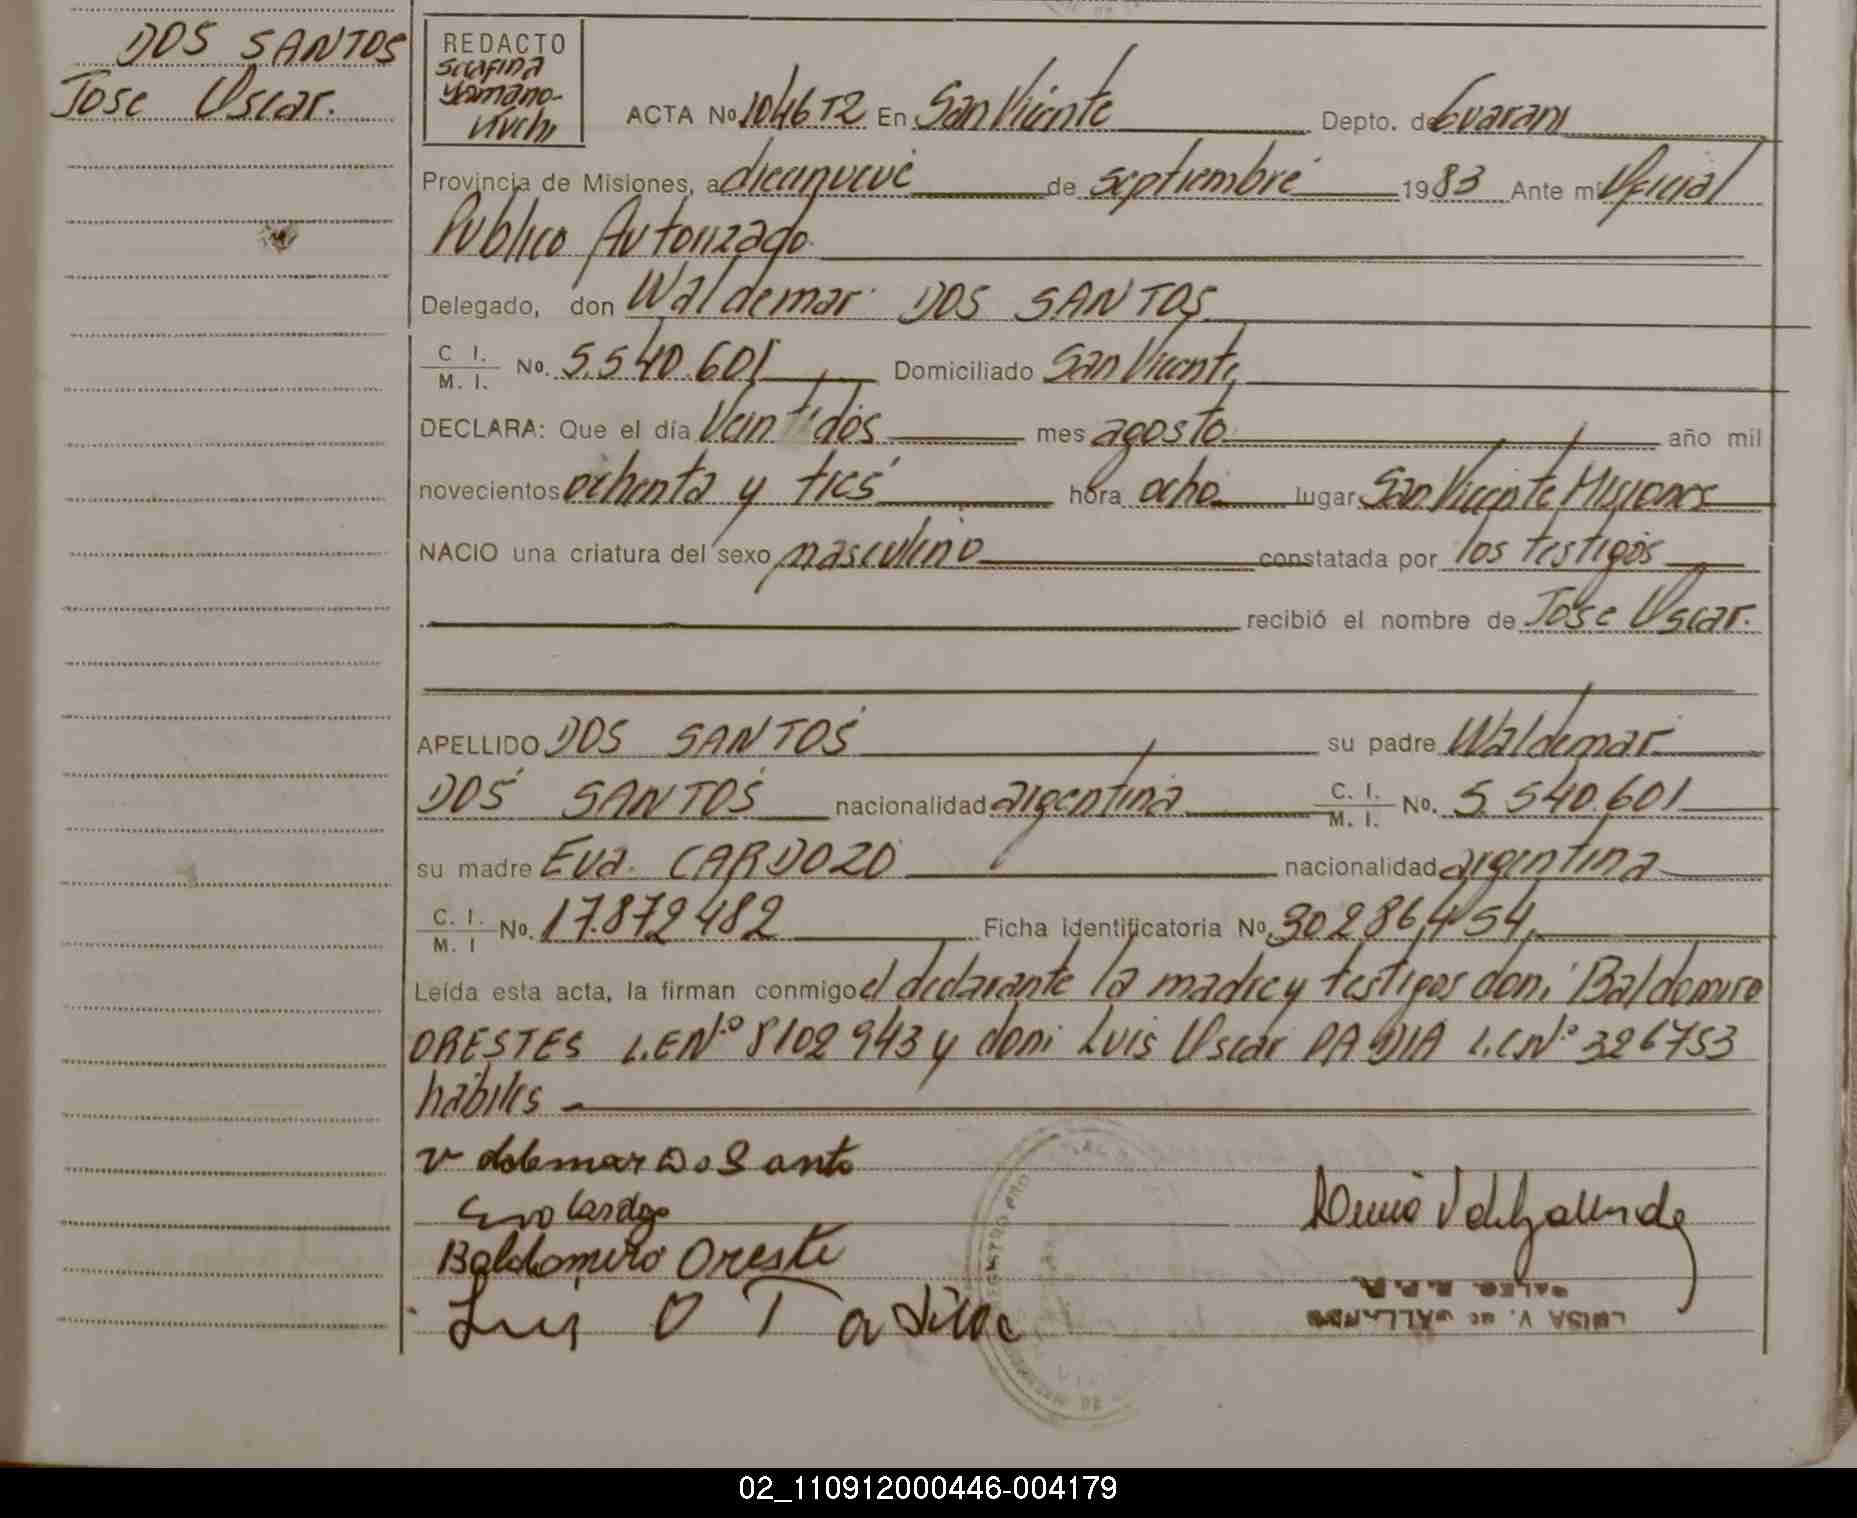 DOS SANTOS
Jose Oscar.
REDACTO
ACTA No 1046 T2 En San Vicente Depto. de Guarani
Provincia de Misiones, a diecinueve de septiembre 1983 Ante mi Oficial
Publico Autorizado
Delegado, don Waldemar DOS SANTOS
C I. M. I. No. 5.540.601 Domiciliado San Vicente
DECLARA: Que el día Veintidos mes agosto año mil
novecientos ochenta y tres hora ocho lugar San Vicente Misiones
NACIO una criatura del sexo masculino constatada por los testigos
recibió el nombre de Jose Oscar.
APELLIDO DOS SANTOS su padre Waldemar
DOS SANTOS nacionalidad argentina C. I. M. I. No. 5.540.601
su madre Eva CARDOZO nacionalidad argentina
C. I. M. I No. 17.872482 Ficha identificatoria No. 30286,454
Leída esta acta, la firman conmigo el declarante la madre y testigos don: Baldomiro
ORESTES L.E Nº 8102943 y don: Luis Oscar PADIA Nº 326753
hábiles
Eva Cardozo
Baldomiro Oreste
Luis O
LUISA V. DE GALLANDO
02_110912000446-004179